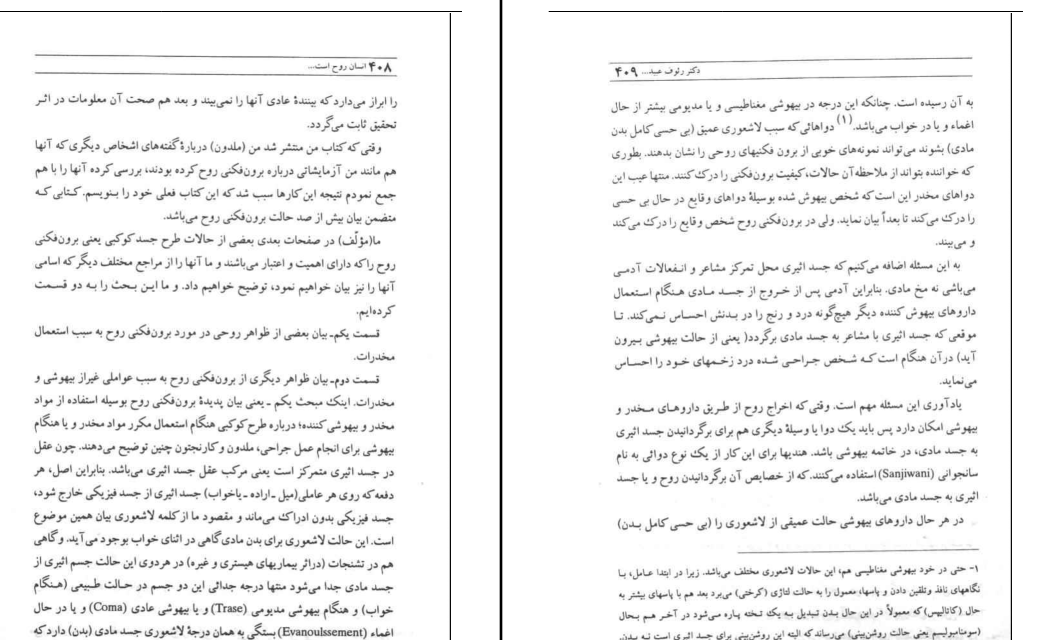 ۴۰۸ انسان روح است...
را ابراز می‌دارد که بینندهٔ عادی آنها را نمی‌بیند و بعد هم صحت آن معلومات در اثر
تحقیق ثابت می‌گردد.
وقتی که کتاب من منتشر شد من (ملدون) دربارهٔ گفته‌های اشخاص دیگری که آنها
هم مانند من آزمایشاتی درباره برون‌فکنی روح کرده بودند، بررسی کرده آنها را با هم
جمع نمودم نتیجه این کارها سبب شد که این کتاب فعلی خود را بنویسم. کتابی که
متضمن بیان بیش از صد حالت برون‌فکنی روح می‌باشد.
ما(مؤلّف) در صفحات بعدی بعضی از حالات طرح جسد کوکبی یعنی برون‌فکنی
روح را که دارای اهمیت و اعتبار می‌باشند و ما آنها را از مراجع مختلف دیگر که اسامی
آنها را نیز بیان خواهیم نمود، توضیح خواهیم داد. و ما این بحث را به دو قسمت
کرده‌ایم.
قسمت یکم‌ـ بیان بعضی از ظواهر روحی در مورد برون‌فکنی روح به سبب استعمال
مخدرات.
قسمت دوم‌ـ بیان ظواهر دیگری از برون‌فکنی روح به سبب عواملی غیراز بیهوشی و
مخدرات. اینک مبحث یکم ـ یعنی بیان پدیدهٔ برون‌فکنی روح بوسیله استفاده از مواد
مخدر و بیهوشی کننده؛ درباره طرح کوکبی هنگام استعمال مکرر مواد مخدر و یا هنگام
بیهوشی برای انجام عمل جراحی، ملدون و کارنجتون چنین توضیح می‌دهند. چون عقل
در جسد اثیری متمرکز است یعنی مرکب عقل جسد اثیری می‌باشد. بنابراین اصل، هر
دفعه که روی هر عاملی(میل ـ اراده ـ یاخواب) جسد اثیری از جسد فیزیکی خارج شود،
جسد فیزیکی بدون ادراک می‌ماند و مقصود ما از کلمه لاشعوری بیان همین موضوع
است. این حالت لاشعوری برای بدن مادی گاهی در اثنای خواب بوجود می‌آید. و گاهی
هم در تشنجات (دراثر بیماریهای هیستری و غیره) در هردوی این حالت جسم اثیری از
جسد مادی جدا می‌شود منتها درجه جدائی این دو جسم در حالت طبیعی (هنگام
خواب) و هنگام بیهوشی مدیومی (Trase) و یا بیهوشی عادی (Coma) و یا در حال
اغماء (Evanoulssement) بستگی به همان درجهٔ لاشعوری جسد مادی (بدن) دارد که
دکتر رئوف عبید... ۴۰۹
به آن رسیده است. چنانکه این درجه در بیهوشی مغناطیسی و یا مدیومی بیشتر از حال
اغماء و یا در خواب می‌باشد.(۱) دواهائی که سبب لاشعوری عمیق (بی حسی کامل بدن
مادی) بشوند می‌تواند نمونه‌های خوبی از برون فکنیهای روحی را نشان بدهند. بطوری
که خواننده بتواند از ملاحظه آن حالات، کیفیت برون‌فکنی را درک کنند. منتها عیب این
دواهای مخدر این است که شخص بیهوش شده بوسیلهٔ دواهای وقایع در حال بی حسی
را درک می‌کند تا بعداً بیان نماید. ولی در برون‌فکنی روح شخص وقایع را درک می‌کند
و می‌بیند.
به این مسئله اضافه می‌کنیم که جسد اثیری محل تمرکز مشاعر و انفعالات آدمی
می‌باشی نه مخ مادی. بنابراین آدمی پس از خروج از جسد مادی هنگام استعمال
داروهای بیهوش کننده دیگر هیچ‌گونه درد و رنج را در بدنش احساس نمی‌کند. تا
موقعی که جسد اثیری با مشاعر به جسد مادی برگردد( یعنی از حالت بیهوشی بیرون
آید) درآن هنگام است که شخص جراحی شده درد زخمهای خود را احساس
می‌نماید.
یادآوری این مسئله مهم است. وقتی که اخراج روح از طریق داروهای مخدر و
بیهوشی امکان دارد پس باید یک دوا یا وسیلهٔ دیگری هم برای برگردانیدن جسد اثیری
به جسد مادی، در خاتمه بیهوشی باشد. هندیها برای این کار از یک نوع دوائی به نام
سانجوانی (Sanjiwani) استفاده می‌کنند. که از خصایص آن برگردانیدن روح و یا جسد
اثیری به جسد مادی می‌باشد.
در هر حال داروهای بیهوشی حالت عمیقی از لاشعوری را (بی حسی کامل بدن)
۱- حتی در خود بیهوشی مغناطیسی هم، این حالات لاشعوری مختلف می‌باشد. زیرا در ابتدا عامل، با
نگاههای نافذ وتلقین دادن و پاسها، معمول را به حالت لتاژی (کرختی) می‌برد بعد هم با پاسهای بیشتر به
حال (کاتالپس) که معمولاً در این حال بدن تبدیل به یک تخته پاره می‌شود در آخر هم بحال
(سومنامبولیسم یعنی حالت روشن‌بینی) می‌رساند که البته این روشن‌بینی برای جسد اثیری است نه بدن.